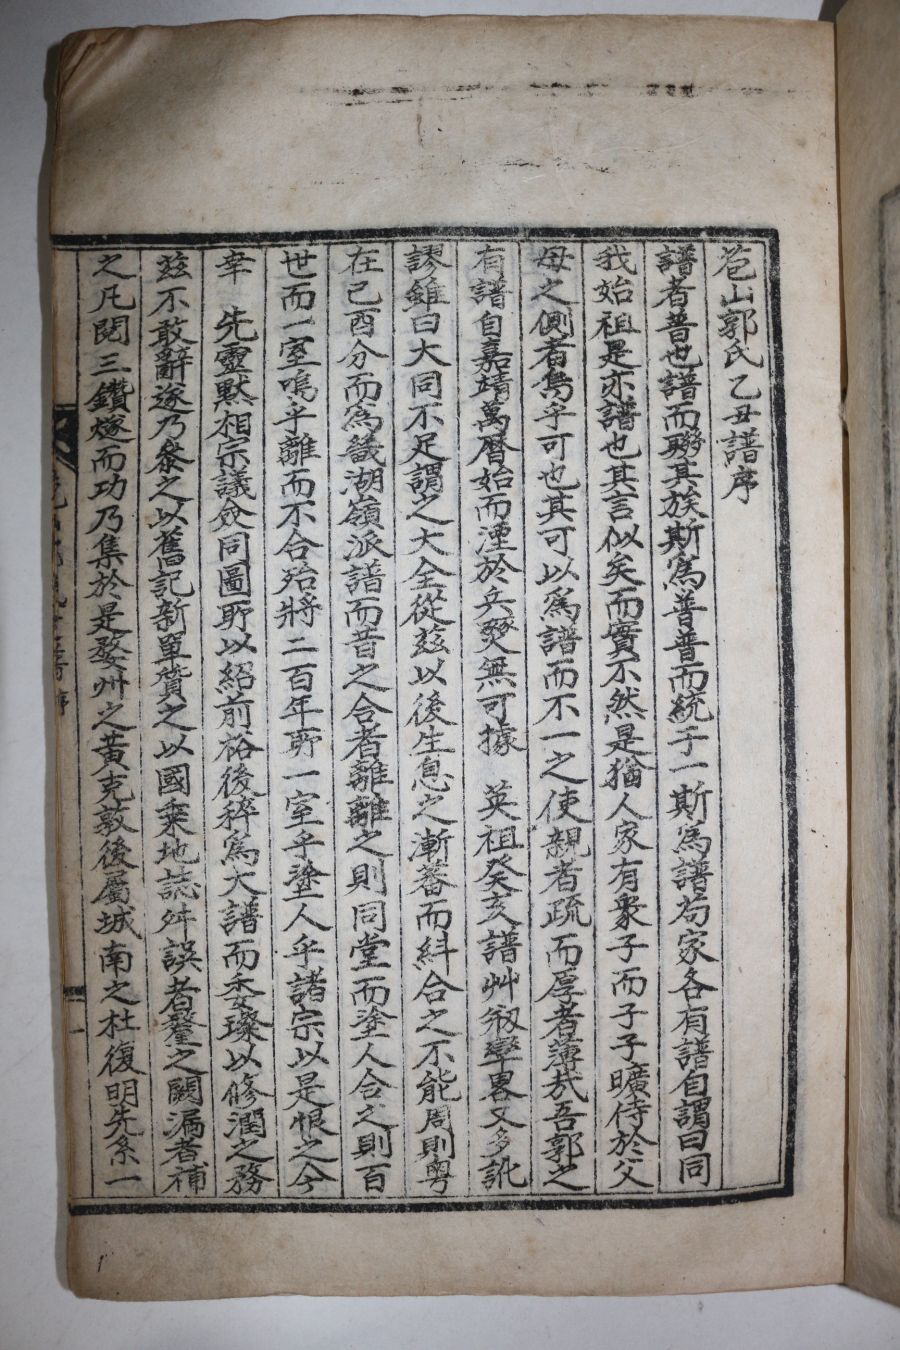 苞山郭氏乙丑譜序
譜者普也譜而聯其族斯爲普普而統于一斯爲譜苟家各有譜自謂曰同
我始祖是亦譜也其言似矣而實不然是猶人家有衆子而子子曠侍於父
母之側者焉乎可也其可以爲譜而不一之使親者疏而厚者薄哉吾郭之
有譜自嘉靖萬曆始而湮於兵燹無可據 英祖癸亥譜艸剏犖畧又多訛
謬雖曰大同不足謂之大全從玆以後生息之漸蕃而紏合之不能周則粤
在己酉分而爲畿湖嶺派譜而昔之合者離離之則同堂而塗人合之則百
世而一室嗚乎離而不合殆將二百年所一室乎塗人乎諸宗以是恨之今
幸 先靈默相宗議僉同圖所以紹前裕後稡爲大譜而委璨以修潤之務
玆不敢辭遂乃叅之以舊記新單賛之以國乘地誌舛誤者釐之闕漏者補
之凡閱三鑽燧而功乃集於是婺州之黃克敦後屬城南之杜復明先系一